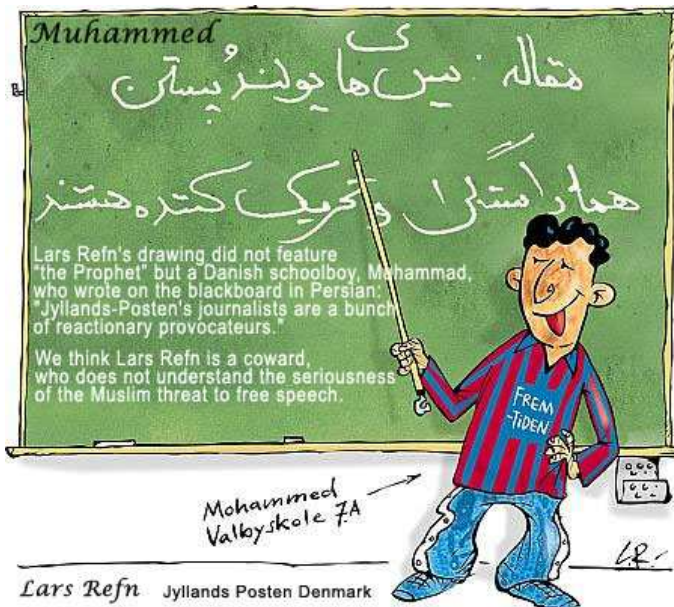 Muhammed
مقاله ها یولند پستن
راستگرا و تحریک کننده هستند
Lars Refn's drawing did not feature
"the Prophet" but a Danish schoolboy, Muhammad,
who wrote on the blackboard in Persian:
"Jyllands-Posten's journalists are a bunch
of reactionary provocateurs."
We think Lars Refn is a coward,
who does not understand the seriousness
of the Muslim threat to free speech.
FREM
-TIDEN
Mohammed
Valbyskole 7.A
L.R.
Lars Refn Jyllands Posten Denmark